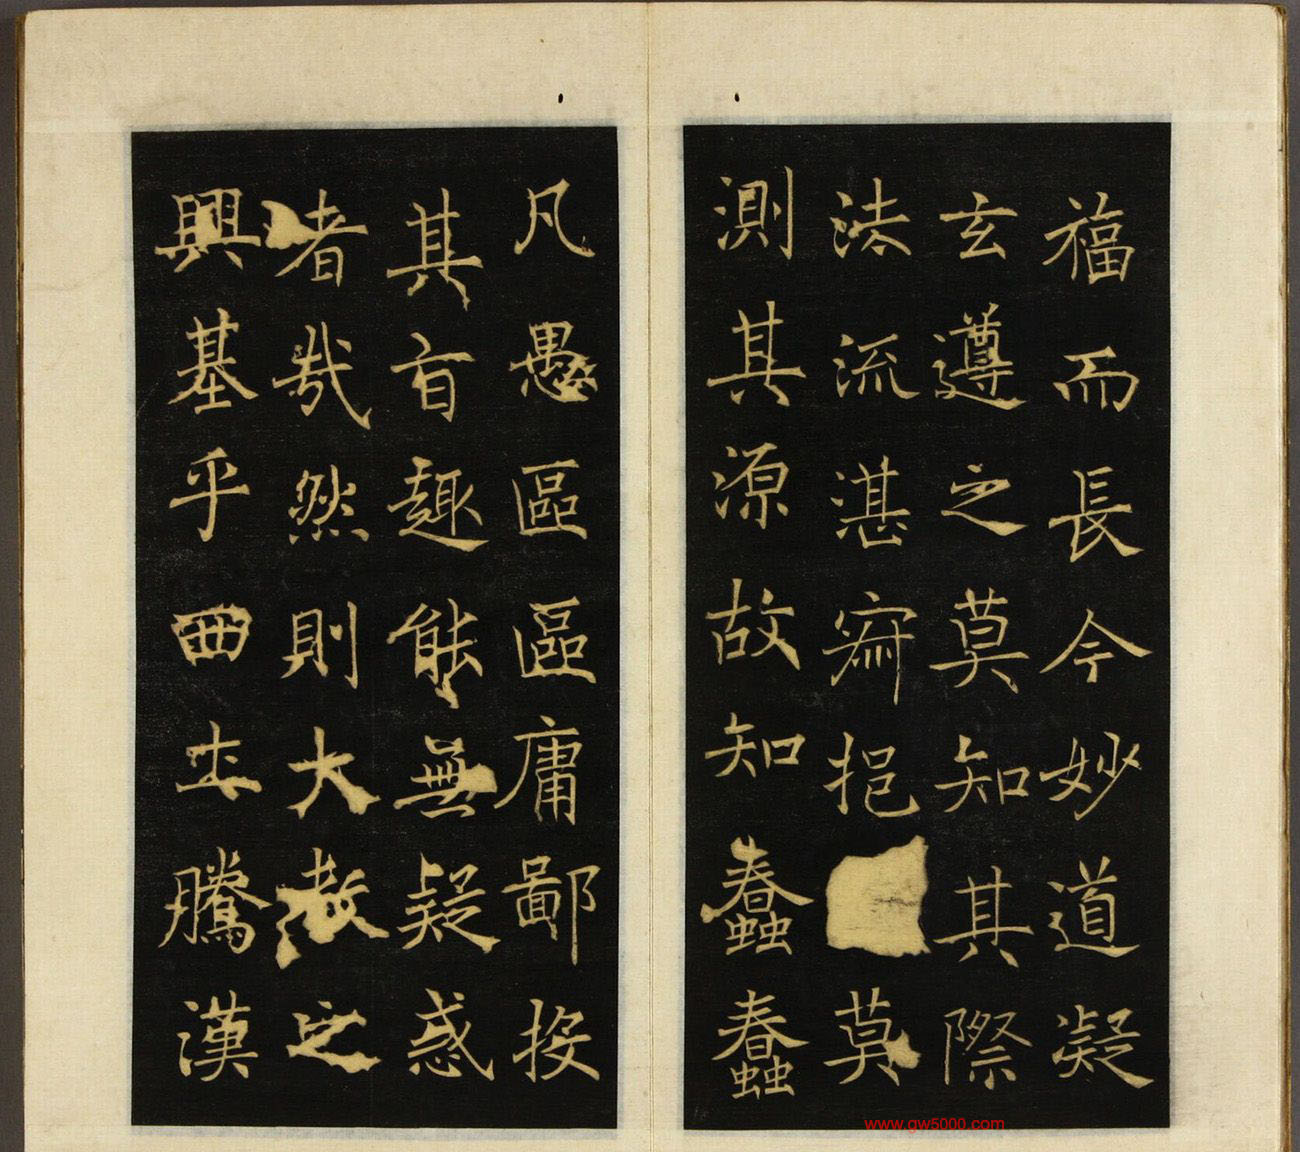 福而長今妙道凝
玄遵之莫知其際
法流湛寂挹莫
測其源故知蠢蠢
凡愚區區庸鄙投
其旨趣能無疑惑
者哉然則大教之
興基乎西土騰漢
www.gw5000.com